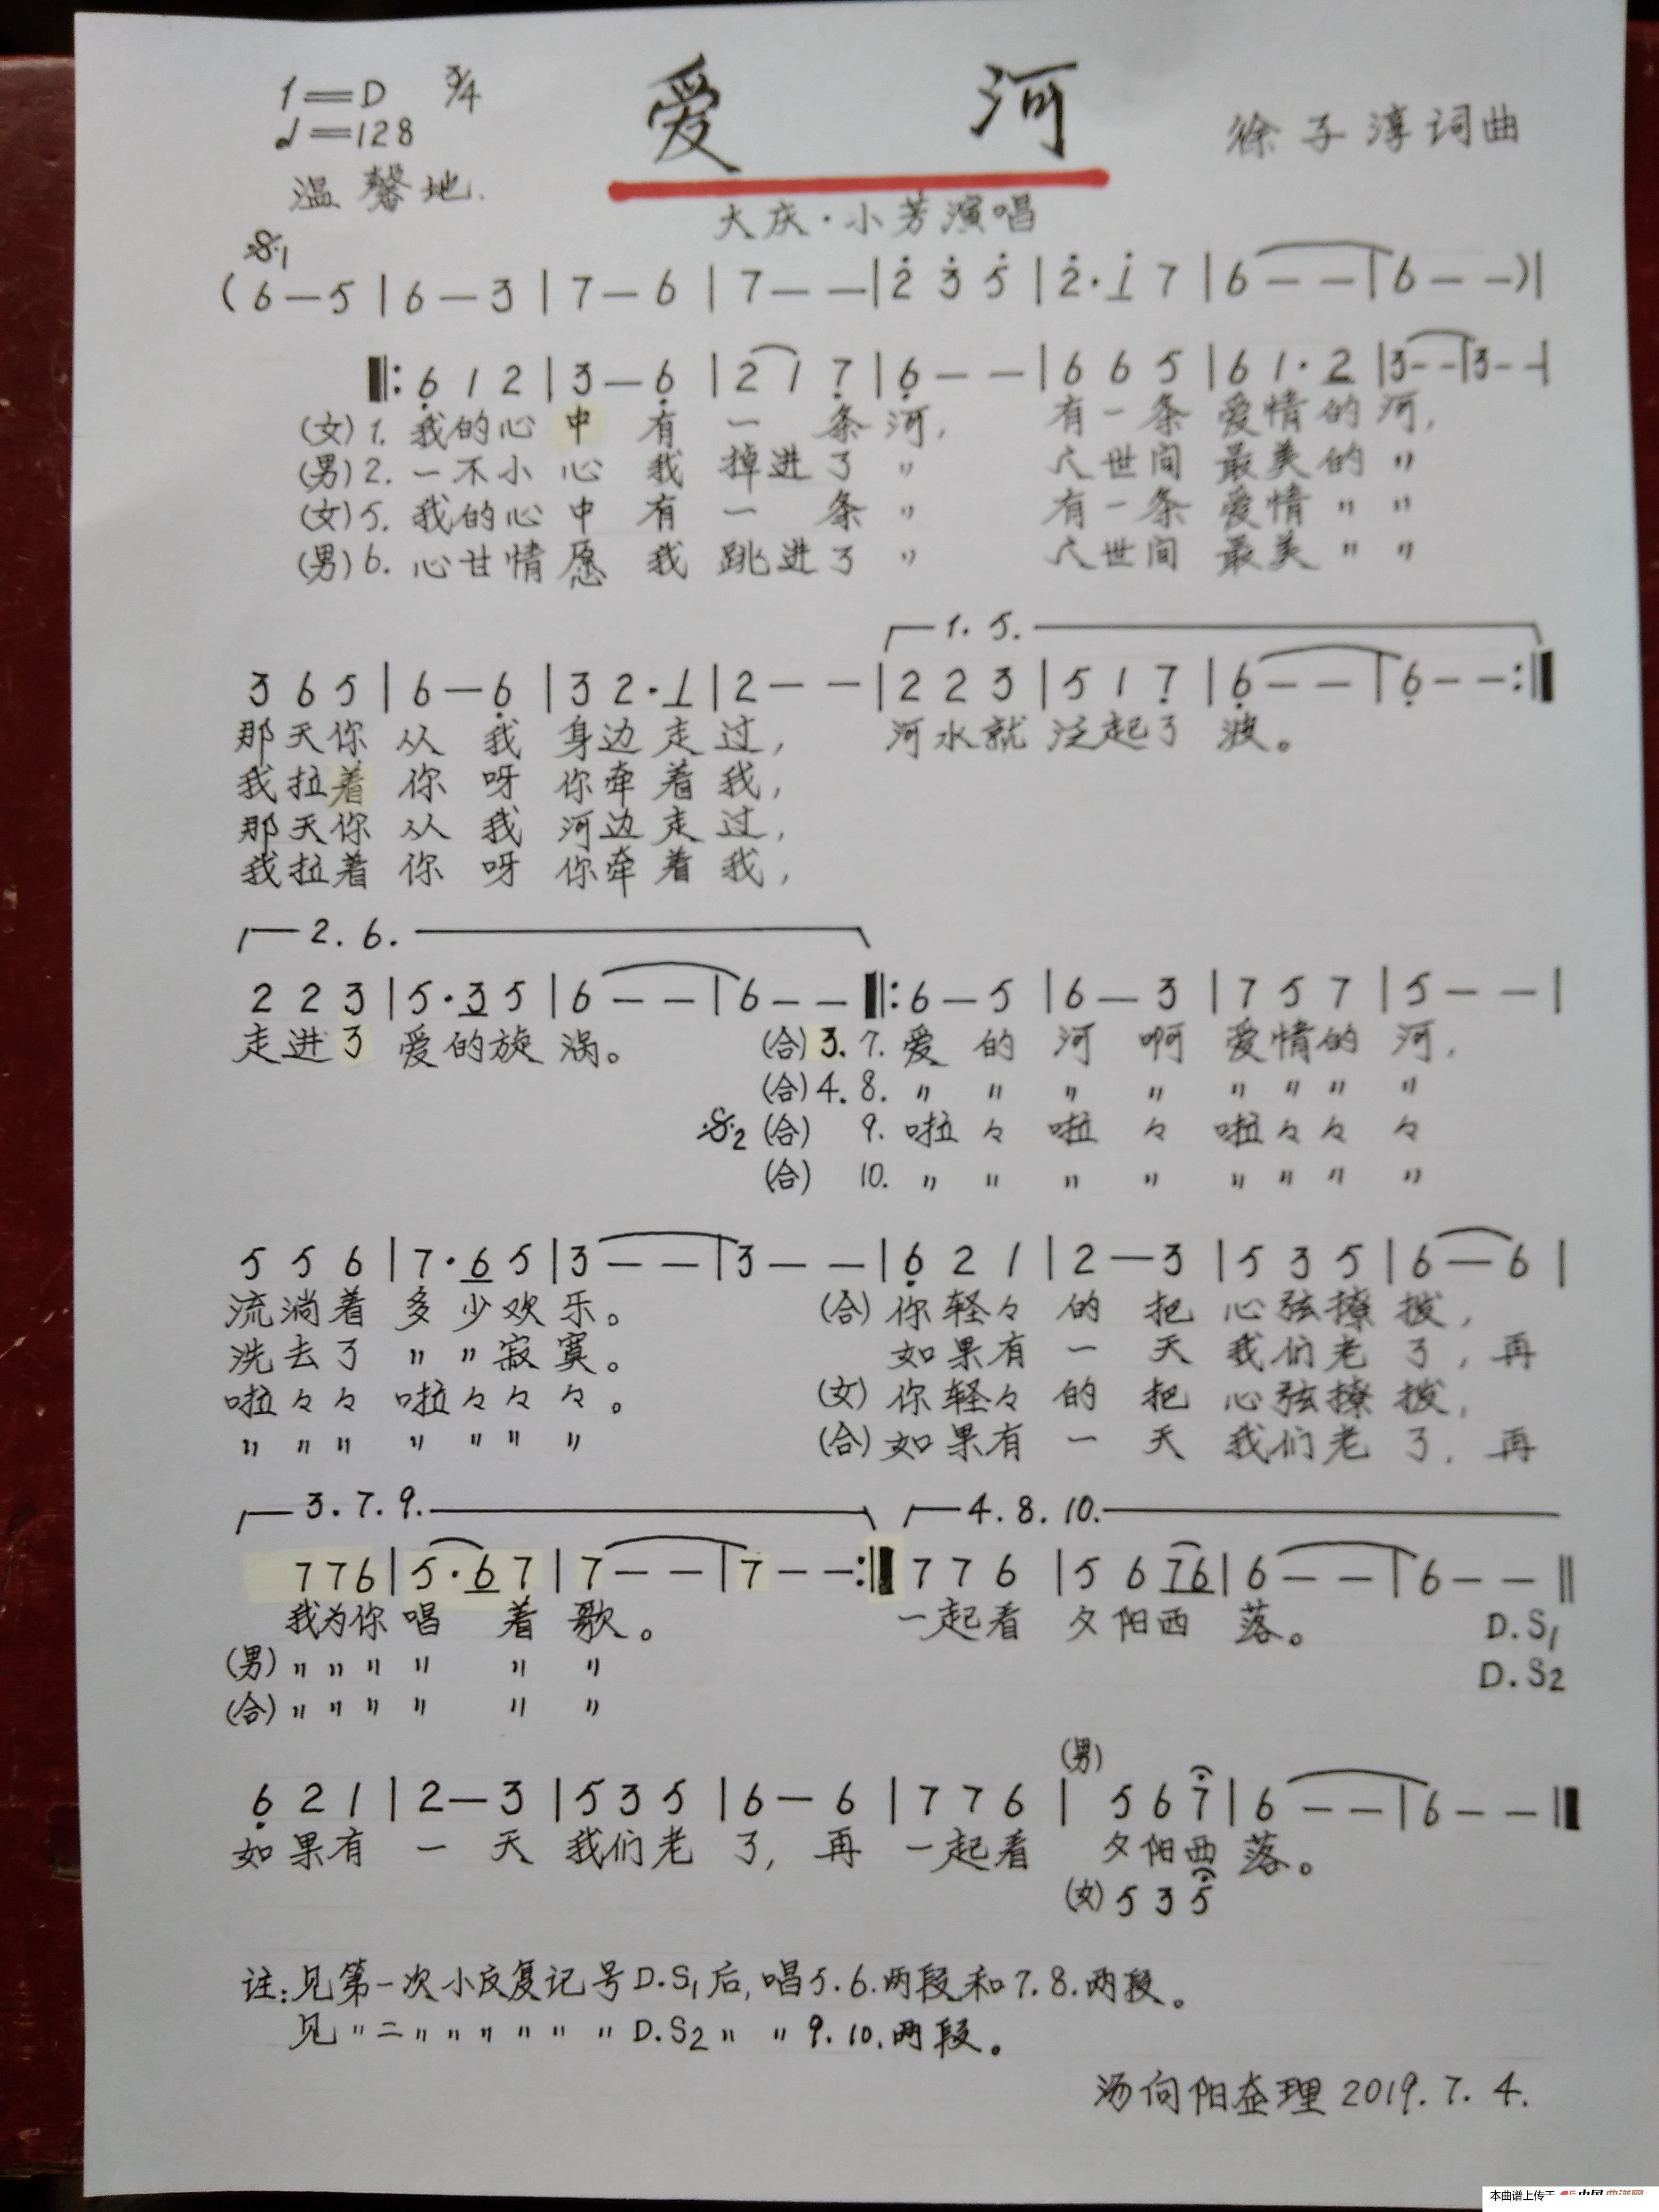 1=D 3/4 爱河
♩=128 徐子淳词曲
温馨地.
大庆·小芳演唱
𝄋1
(6—5|6—3|7—6|7——|2̇ 3̇ 5̇|2̇·1̇ 7|6——|6——)|
‖:6̣ 1 2|3—6̣|2 1 7̣|6̣——|6 6 5|6 1·2|3——|3——|
(女)1.我的心中有一条河, 有一条爱情的河,
(男)2.一不小心我掉进了〃 人世间最美的〃
(女)5.我的心中有一条〃 有一条爱情〃〃
(男)6.心甘情愿我跳进了〃 人世间最美〃〃
1. 5.
3 6 5|6—6̣|3 2·1|2——|2 2 3|5 1 7̣|6̣——|6̣——:‖
那天你从我身边走过, 河水就泛起了波。
我拉着你呀你牵着我,
那天你从我河边走过,
我拉着你呀你牵着我,
2. 6.
2 2 3|5·3 5|6——|6——‖:6—5|6—3|7 5 7|5——|
走进了爱的旋涡。 (合)3. 7.爱的河啊爱情的河,
(合)4. 8.〃〃〃〃〃〃〃〃
𝄋2 (合) 9.啦々啦々啦々々々
(合) 10.〃〃〃〃〃〃〃〃
5 5 6|7·6 5|3——|3——|6̣ 2 1|2—3|5 3 5|6—6|
流淌着多少欢乐。 (合)你轻々的把心弦撩拨,
洗去了〃〃寂寞。 如果有一天我们老了,再
啦々々啦々々々。 (女)你轻々的把心弦撩拨,
〃〃〃〃〃〃〃 (合)如果有一天我们老了,再
3. 7. 9. 4. 8. 10.
7 7 6|5·6 7|7——|7——:‖7 7 6|5 6 7 6|6——|6——‖
我为你唱着歌。 一起看夕阳西落。 D.S1
(男)〃〃〃〃〃〃 D.S2
(合)〃〃〃〃〃〃
(男)
6̣ 2 1|2—3|5 3 5|6—6|7 7 6|5 6 7|6——|6——‖
如果有一天我们老了,再一起看夕阳西落。
(女)5 3 5
注:见第一次小反复记号D.S1后,唱5.6.两段和7.8.两段。
见〃二〃〃〃〃〃〃D.S2〃〃9.10.两段。
汤向阳整理2019.7.4.
本曲谱上传于